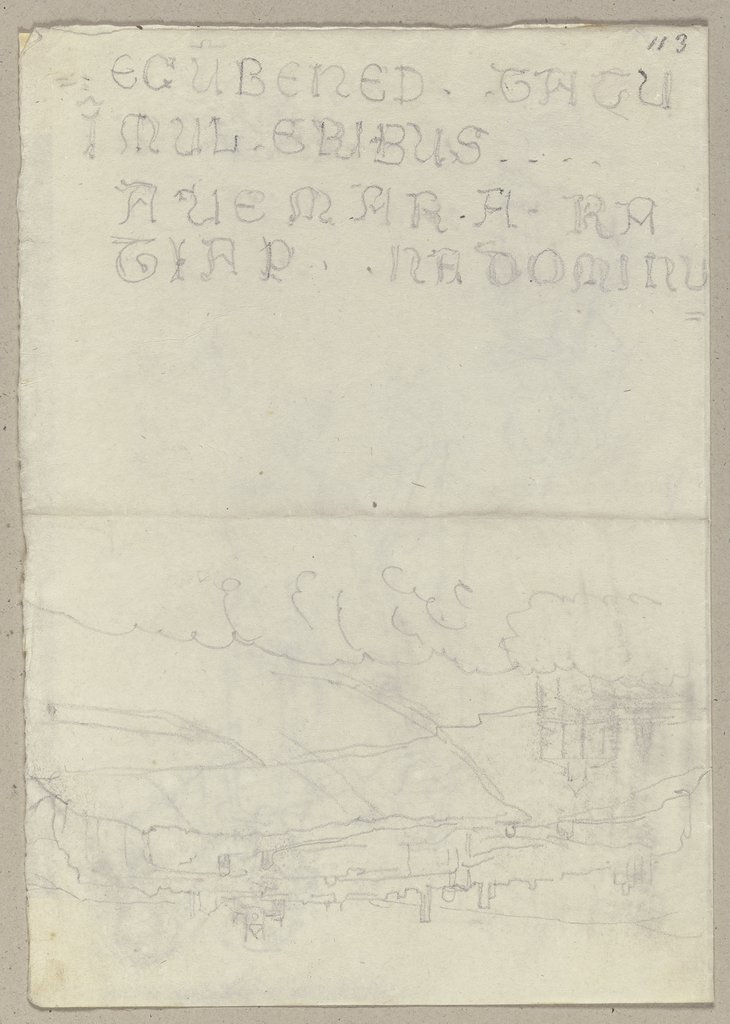 113
ECŪBENED . . TATU
Ī MUL . ERIBUS . . . .
AUEMAR . A - RA
TIAP . . . NADOMINU